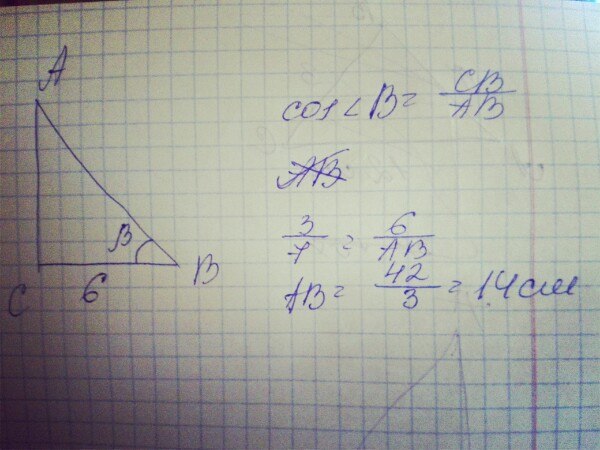 A
β
C 6 B
cos∠B = CB/AB
3/7 = 6/AB
AB = 42/3 = 14 см